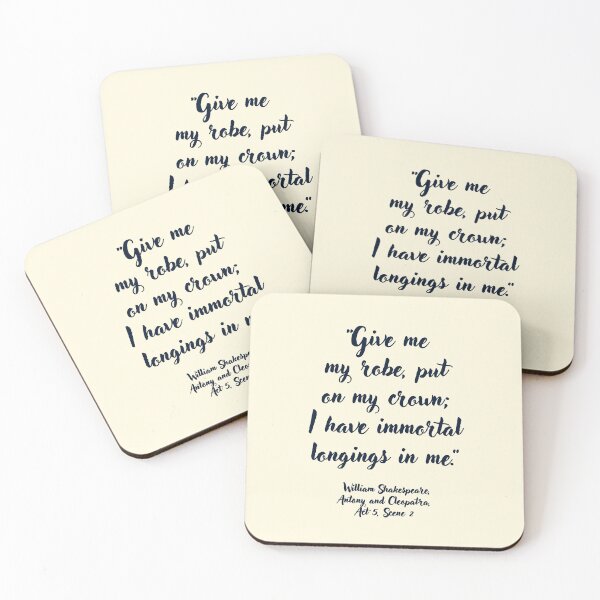 "Give me
my robe, put
on my crown;
I
me."
"Give me
my robe, put
on my crown;
I have immortal
longings in me."
"Give me
my robe, put
on my crown;
I have immortal
longings in
William
Antony and
Act 5, Scene
"Give me
my robe, put
on my crown;
I have immortal
longings in me."
William Shakespeare,
Antony and Cleopatra,
Act 5, Scene 2